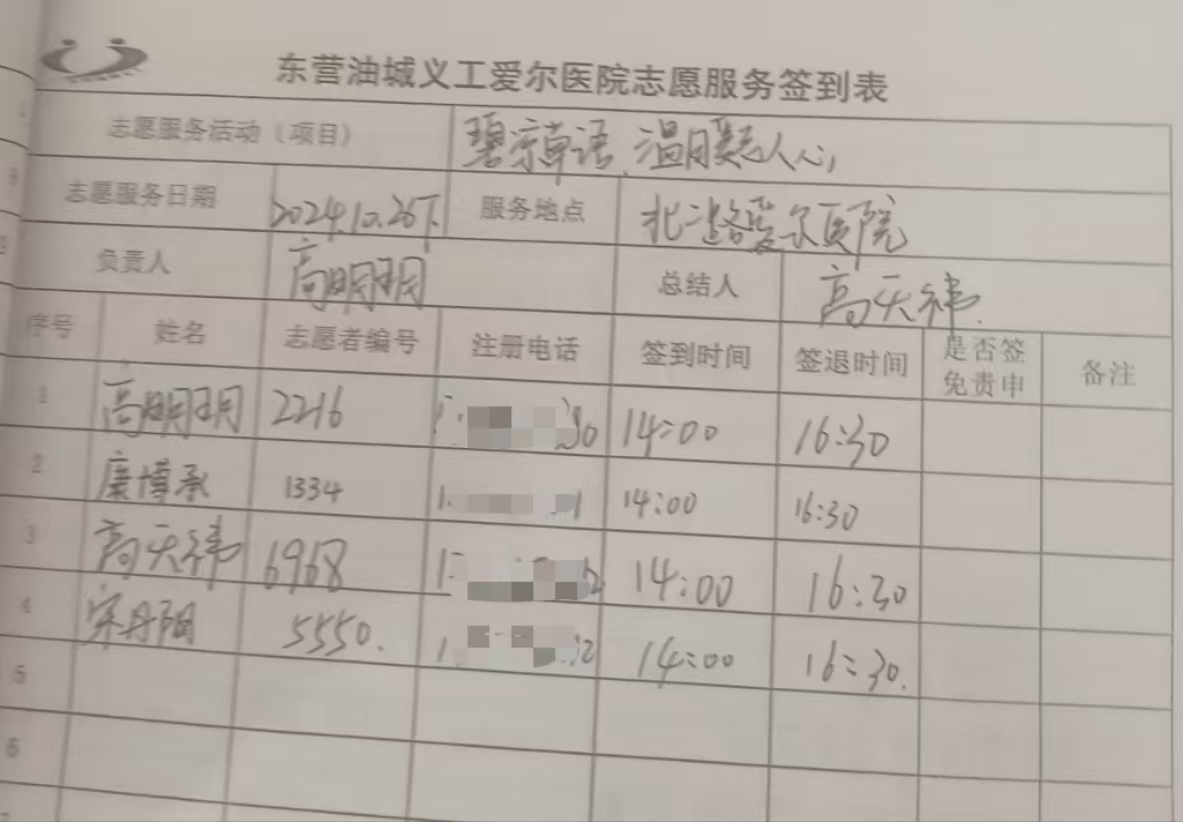 东营油城义工爱尔医院志愿服务签到表
志愿服务活动（项目） 碧凉草语、温暖人心
志愿服务日期 2024.10.26下 服务地点 北二路爱尔医院
负责人 高明玥 总结人 高天祎
序号 姓名 志愿者编号 注册电话 签到时间 签退时间 是否签免责申 备注
1 高明玥 2216 14:00 16:30
2 康博承 1334 14:00 16:30
3 高天祎 6968 14:00 16:30
4 宋丹阳 5550. 14:00 16:30.
5
6